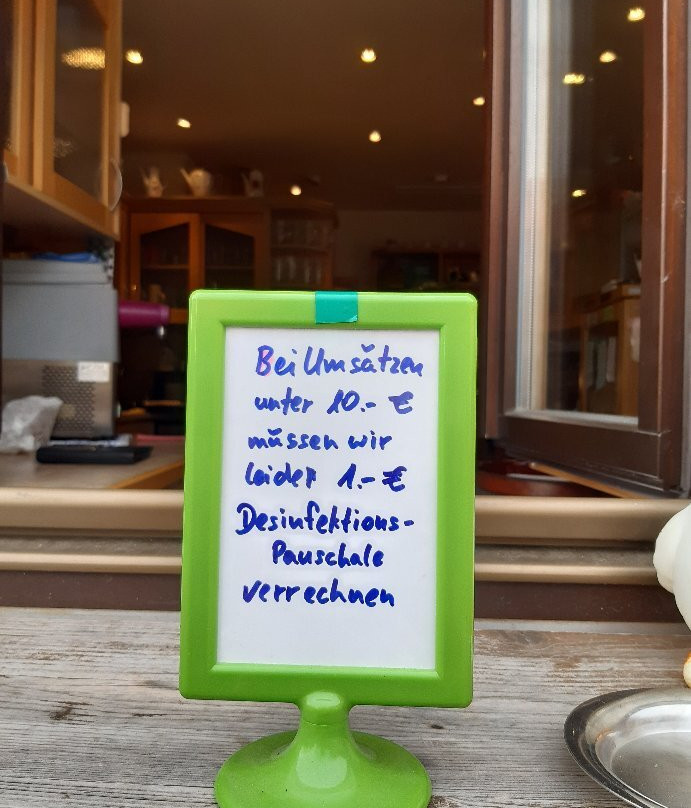 Bei Umsätzen
unter 10.- €
müssen wir
leider 1.- €
Desinfektions-
Pauschale
verrechnen